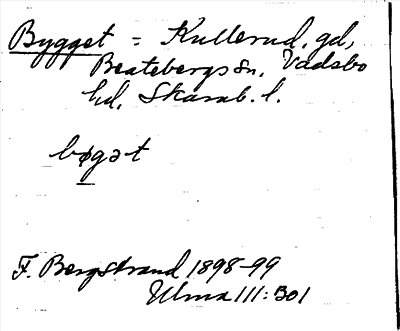 Bygget = Kullerud, gd,
Beatebergs sn, Vadsbo
hd, Skarab. l.
bøgət
F. Bergstrand 1898-99
Ulma 111:301